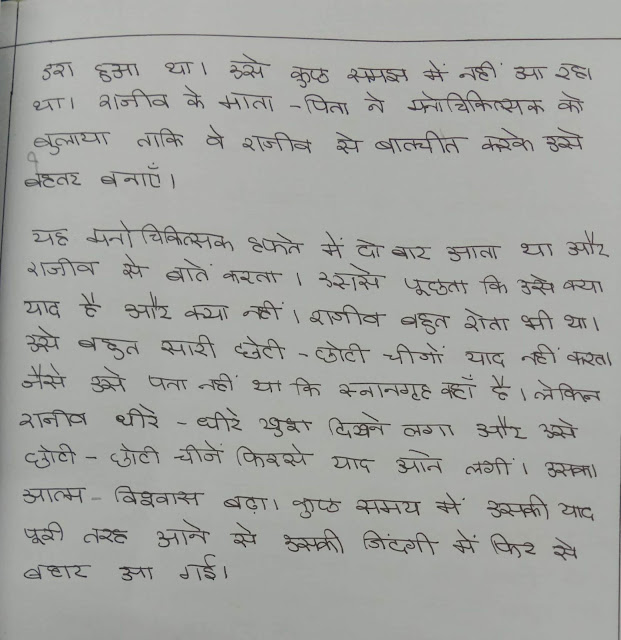 डरा हुआ था। उसे कुछ समझ में नहीं आ रहा
था। राजीव के माता - पिता ने मनोचिकित्सक को
बुलाया ताकि वे राजीव से बातचीत करके उसे
बेहतर बनाएँ।
यह मनोचिकित्सक हफते में दो बार आता था और
राजीव से बातें करता। उससे पूछता कि उसे क्या
याद है और क्या नहीं। राजीव बहुत रोता भी था।
उसे बहुत सारी छोटी - छोटी चीजों याद नहीं करता
जैसे उसे पता नहीं था कि स्नानगृह कहाँ है। लेकिन
राजीव धीरे - धीरे खुश दिखने लगा और उसे
छोटी - छोटी चीजें फिरसे याद आने लगीं। उसका
आत्म - विश्वास बढ़ा। कुछ समय में उसकी याद
पूरी तरह आने से उसकी जिंदगी में फिर से
बहार आ गई।